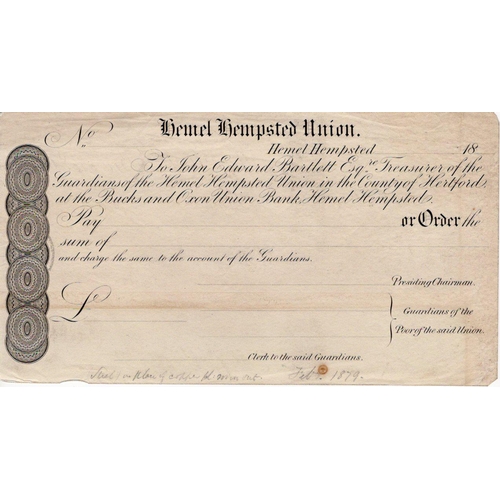 No
Hemel Hempsted Union.
Hemel Hempsted 18
To John Edward Bartlett Esqre. Treasurer of the
Guardians of the Hemel Hempsted Union in the County of Hertford,
at the Bucks and Oxon Union Bank, Hemel Hempsted.
Pay or Order the
sum of
and charge the same to the account of the Guardians.
Presiding Chairman.
£
Guardians of the
Poor of the said Union.
Clerk to the said Guardians.
in place of copper pl worn out. 1879.